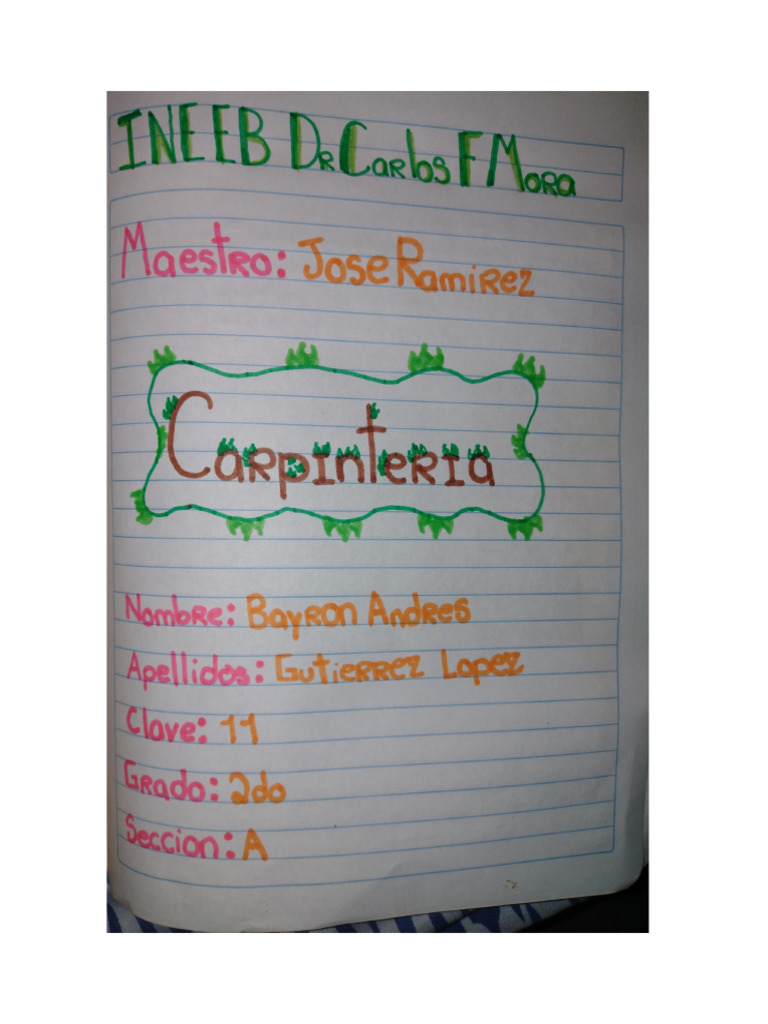 INEEB DR Carlos F Mora
Maestro: Jose Ramirez
Carpinteria
Nombre: Bayron Andres
Apellidos: Gutierrez Lopez
Clave: 11
Grado: 2do
Seccion: A